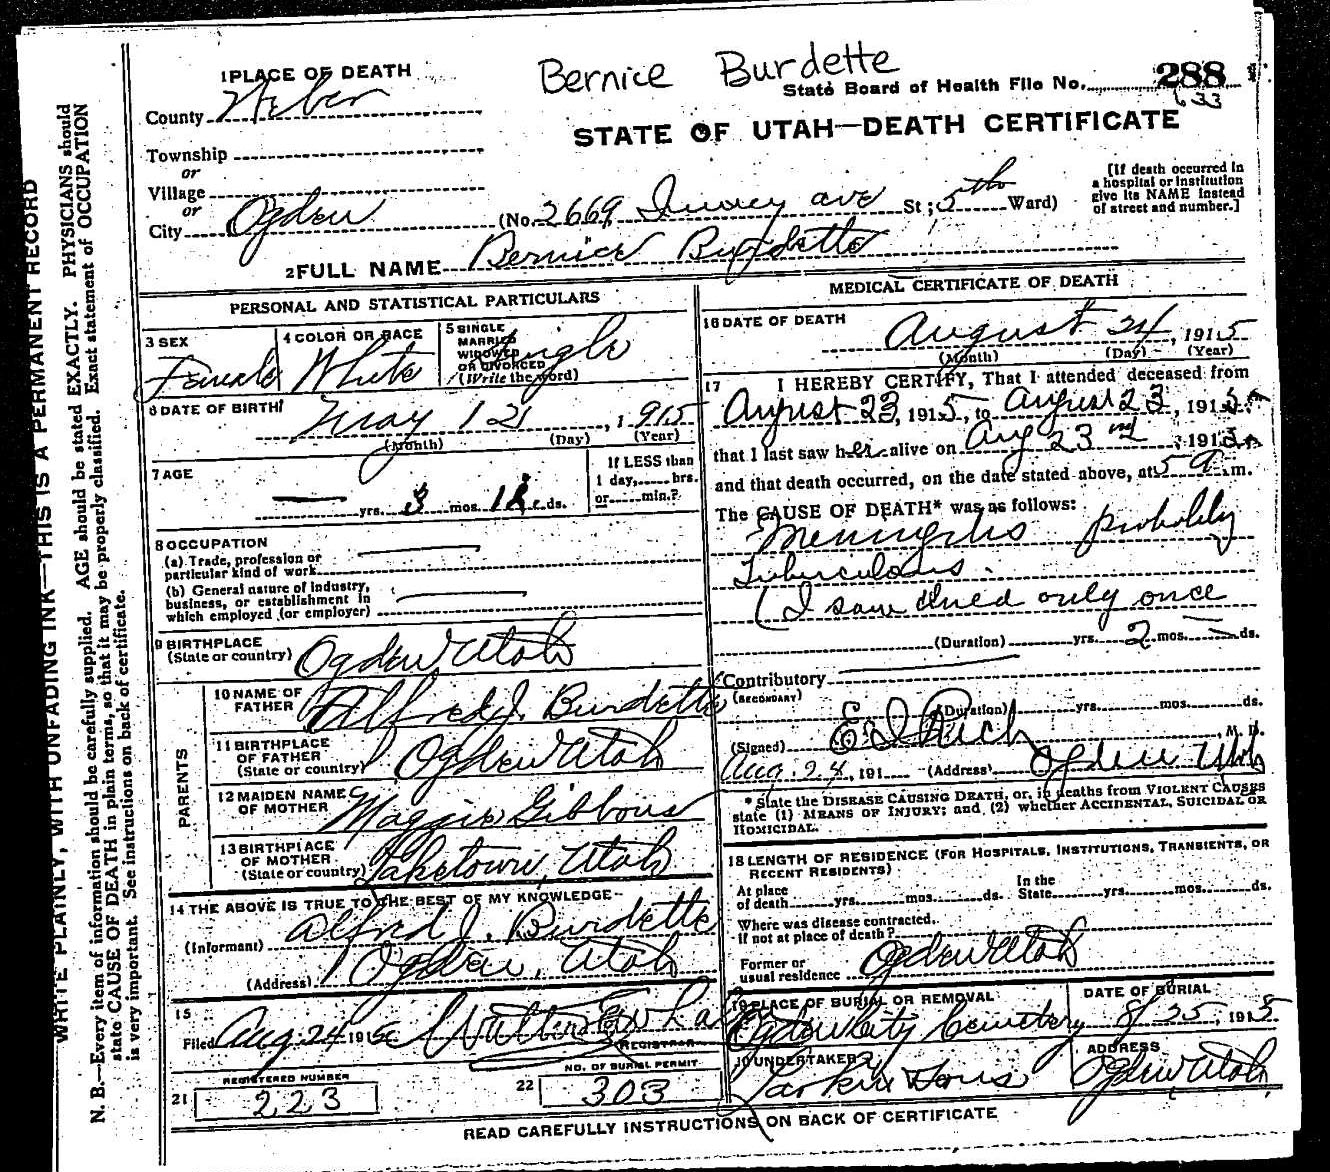 Bernice Burdette
1 PLACE OF DEATH
State Board of Health File No. 288
633
County Weber
STATE OF UTAH—DEATH CERTIFICATE
Township
or
Village
or
City Ogden
(No. 2669 ave St; 5th Ward)
[If death occurred in
a hospital or institution
give its NAME instead
of street and number.]
2 FULL NAME Bernice Burdette
PERSONAL AND STATISTICAL PARTICULARS
3 SEX
Female
4 COLOR OR RACE
White
5 SINGLE
MARRIED
WIDOWED
OR DIVORCED
(Write the word)
Single
6 DATE OF BIRTH
May 12, 1915
(Month) (Day) (Year)
7 AGE
— yrs. 3 mos. 12 ds.
If LESS than
1 day, hrs.
or min.?
8 OCCUPATION
(a) Trade, profession or
particular kind of work
(b) General nature of industry,
business, or establishment in
which employed (or employer)
9 BIRTHPLACE
(State or country) Ogden Utah
PARENTS
10 NAME OF
FATHER Alfred J. Burdette
11 BIRTHPLACE
OF FATHER
(State or country) Ogden Utah
12 MAIDEN NAME
OF MOTHER Maggie Gibbons
13 BIRTHPLACE
OF MOTHER
(State or country) Laketown, Utah
14 THE ABOVE IS TRUE TO THE BEST OF MY KNOWLEDGE
(Informant) Alfred J. Burdette
(Address) Ogden, Utah
15
Filed Aug 24 1915
REGISTRAR
REGISTERED NUMBER
21 223
NO. OF BURIAL PERMIT
22 303
MEDICAL CERTIFICATE OF DEATH
16 DATE OF DEATH
August 24, 1915
(Month) (Day) (Year)
17 I HEREBY CERTIFY, That I attended deceased from
August 23, 1915, to August 23, 1915
that I last saw her alive on Aug 23rd 1915
and that death occurred, on the date stated above, at 5 a. m.
The CAUSE OF DEATH* was as follows:
Meningitis probably
Tuberculous.
(I saw child only once
(Duration) yrs. 2 mos. — ds.
Contributory
(SECONDARY)
(Duration) yrs. mos. ds.
(Signed) E I Rich, M. D.
Aug. 24, 191 (Address) Ogden Utah
* State the DISEASE CAUSING DEATH, or, in deaths from VIOLENT CAUSES
state (1) MEANS OF INJURY; and, (2) whether ACCIDENTAL, SUICIDAL OR
HOMICIDAL.
18 LENGTH OF RESIDENCE (FOR HOSPITALS, INSTITUTIONS, TRANSIENTS, OR
RECENT RESIDENTS)
At place
of death yrs. mos. ds.
In the
State yrs. mos. ds.
Where was disease contracted,
if not at place of death?
Former or
usual residence Ogden Utah
19 PLACE OF BURIAL OR REMOVAL
Ogden City Cemetery
DATE OF BURIAL
8/25, 1915
20 UNDERTAKER
Larkin Sons
ADDRESS
Ogden Utah
READ CAREFULLY INSTRUCTIONS ON BACK OF CERTIFICATE
WRITE PLAINLY, WITH UNFADING INK—THIS IS A PERMANENT RECORD
N. B.—Every item of information should be carefully supplied. AGE should be stated EXACTLY. PHYSICIANS should
state CAUSE OF DEATH in plain terms, so that it may be properly classified. Exact statement of OCCUPATION
is very important. See instructions on back of certificate.